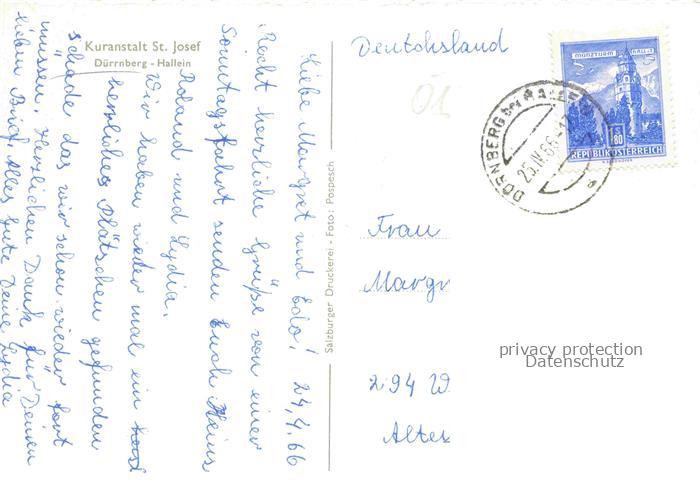 Kuranstalt St. Josef
Dürrnberg - Hallein
Liebe Margret und Edo! 24.4.66
Recht herzliche Grüße von einer
Sonntagsfahrt senden Euch Heins
Roland und Lydia.
Wir haben wieder mal ein
herrliches Plätschen gefunden
schade das wir schon wieder fort
müssen. Herzlichen Dank für Deinen
lieben Brief. Alles Gute Deine Lydia
Salzburger Druckerei - Foto: Pospesch
Deutchsland
Ö1
MÜNZTURM HALL i. T.
S 1.80
REPUBLIK ÖSTERREICH
DÜRNBERG bei HALLEIN
25.IV.66
Frau
Margr
294 W
Alter
privacy protection
Datenschutz